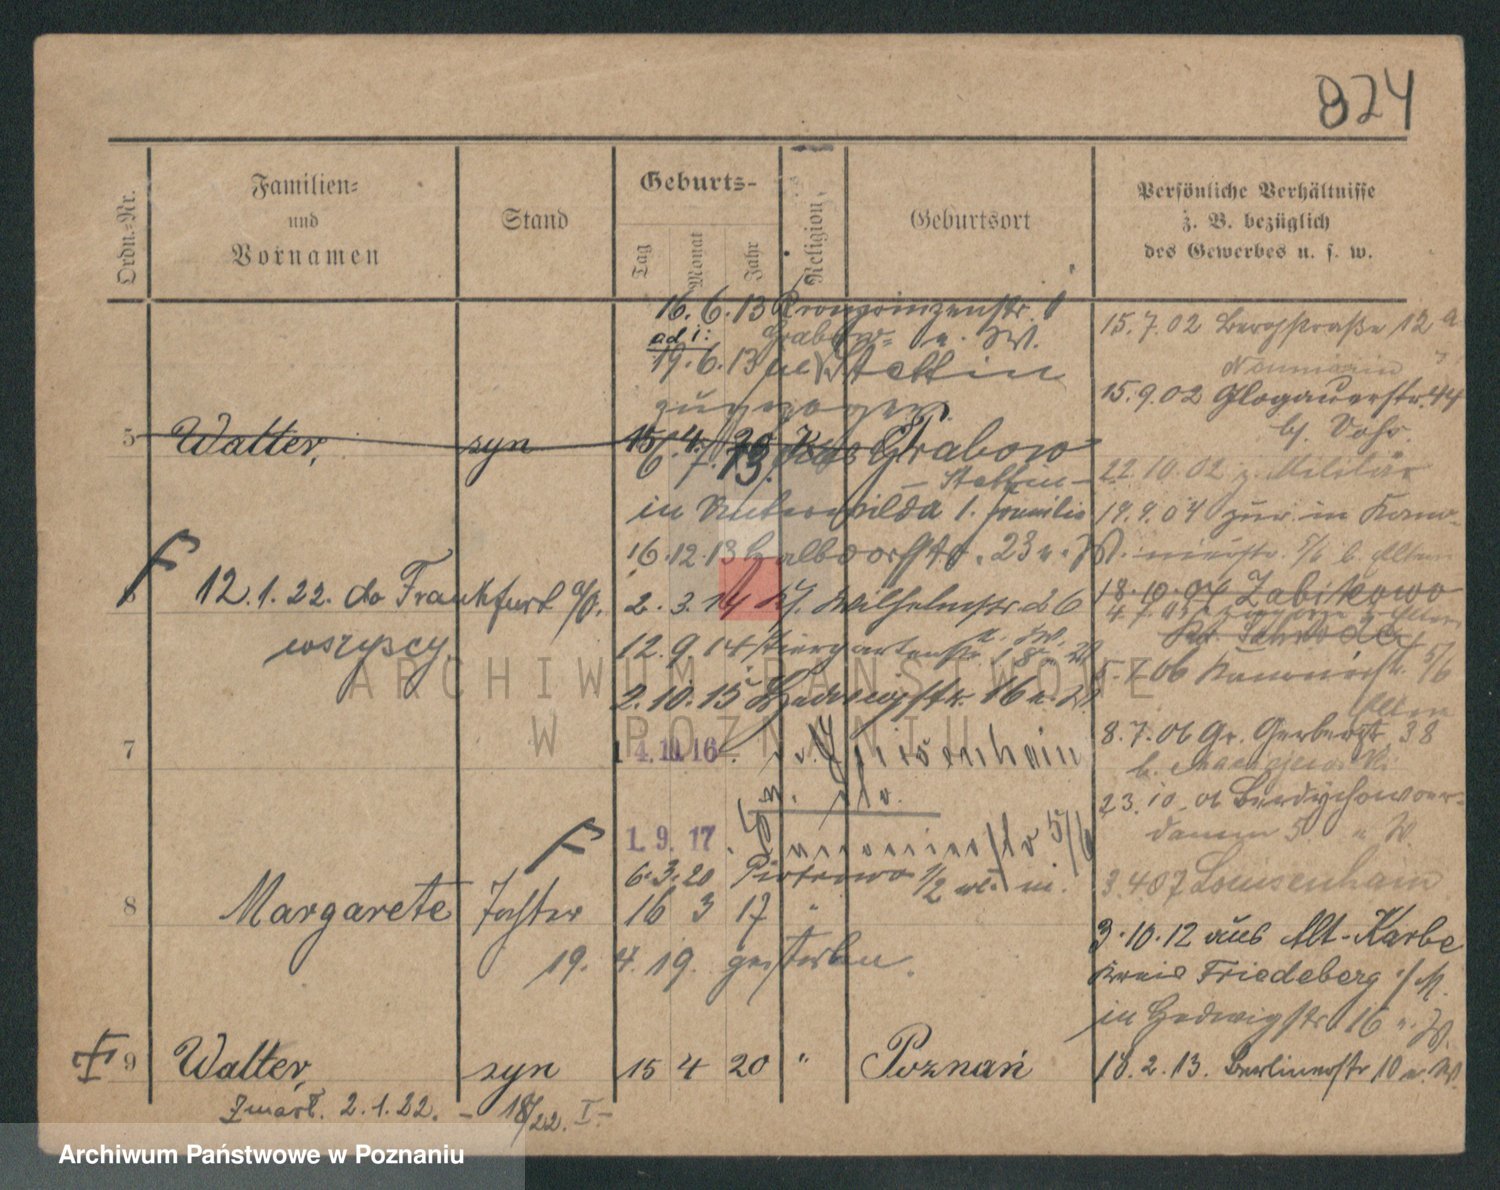 824
Ordn.-Nr.
Familien-
und
Vornamen
Stand
Geburts-
Tag
Monat
Jahr
Religion
Geburtsort
Persönliche Verhältnisse
z. B. bezüglich
des Gewerbes u. s. w.
16. 6. 13 Kronprinzenstr.
ad 1:
19. 6. 13 Stettin
zugezogen
5 Walter, syn 15 4. 20 Grabow
6. 7. 13.
Stettin
in Unterwilda
16.12.13 Halbdorfstr. 23 u. W.
6
12.1.22. do Frankfurt a/O.
wszyscy
2. 3. 14 Kl. Wilhelmstr. 26
12. 9. 14 Tiergartenstr.
2. 10. 15 Hedwigstr. 16 u. W
7
4. 10. 16
1. 9. 17 5/6
6. 3. 20 Piotrowo 1/2
8 Margarete Tochter 16 3 17 "
19. 4. 19. gestorben.
9 Walter, syn 15 4 20 " Poznań
Zmarł. 2.1.22. - 18/22. I -
15.7.02 Bergstraße 12 a
Neumann
15.9.02 Glogauerstr. 44
22.10.02 z. Militär
19.9.04 zur. in Kano-
nierstr. 5/6 b. Eltern
18.10.04 Zabikowo
5.7.06 Kanonierstr. 5/6
Eltern
8.7.06 Gr. Gerberstr. 38
23.10.06 Berdychowoer-
damm 5. u. W.
3.4.07 Louisenhain
3.10.12 aus Alt-Karbe
Kreis Friedeberg /M.
in Hedwigstr. 16 u. W.
18.2.13. Berlinerstr 10 u. W.
ARCHIWUM PAŃSTWOWE
W POZNANIU
Archiwum Państwowe w Poznaniu